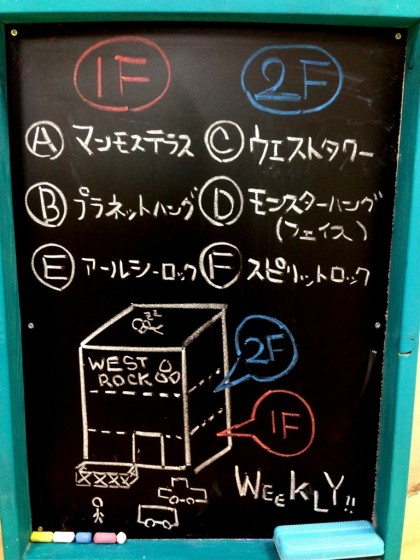 1F 2F
Ⓐ マンモステラス Ⓒ ウエストタワー
Ⓑ プラネットハング Ⓓ モンスターハング
(フェイス)
Ⓔ アールシーロック Ⓕ スピリットロック
zz
WEST
ROCK
2F
1F
WEEKLY!!